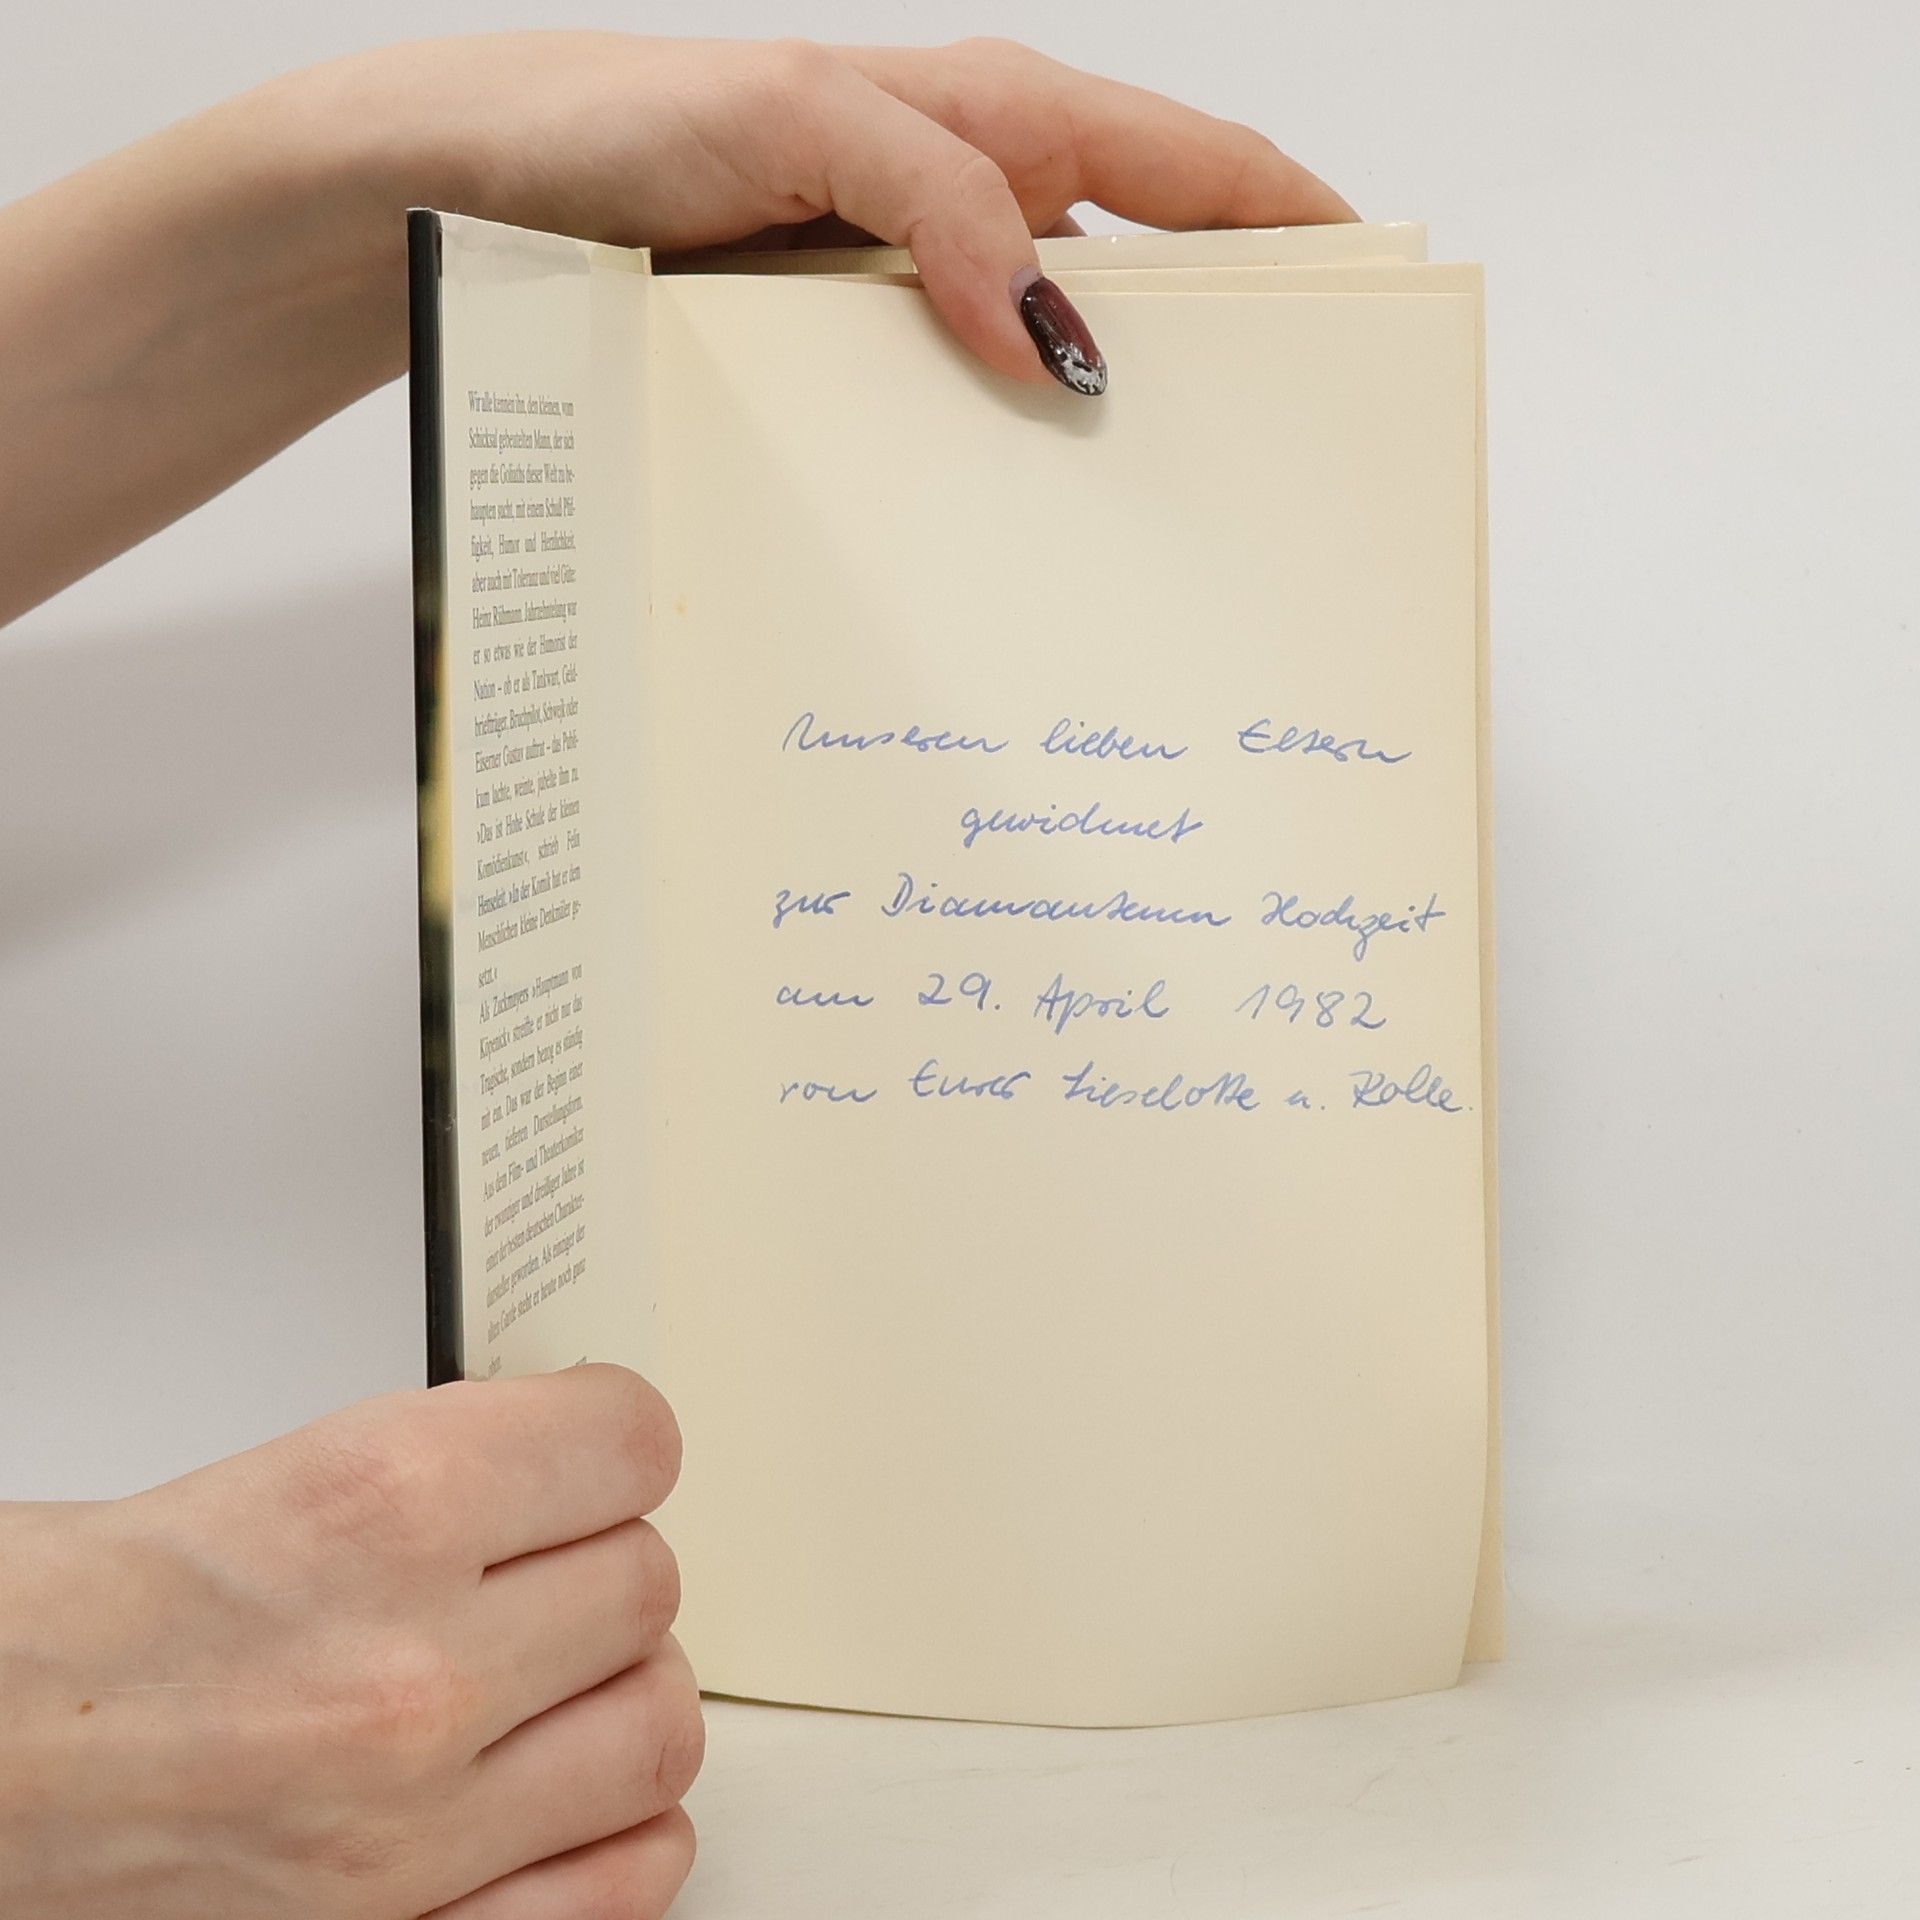 Wir alle kennen ihn, den kleinen, vom
Schicksal gebeutelten Mann, der sich
gegen die Goliaths dieser Welt zu be-
haupten sucht, mit einem Schuß Pfif-
figkeit, Humor und Herzlichkeit,
aber auch mit Toleranz und viel Güte:
Heinz Rühmann. Jahrzehntelang war
er so etwas wie der Humorist der
Nation – ob er als Tankwart, Geld-
briefträger, Bruchpilot, Schwejk oder
Eiserner Gustav auftrat – das Publi-
kum lachte, weinte, jubelte ihm zu.
»Das ist Hohe Schule der kleinen
Komödienkunst«, schrieb Felix
Henseleit. »In der Komik hat er dem
Menschlichen kleine Denkmäler ge-
setzt.«
Als Zuckmayers »Hauptmann von
Köpenick« streifte er nicht nur das
Tragische, sondern bezog es ständig
mit ein. Das war der Beginn einer
neuen, tieferen Darstellungsform.
Aus dem Film- und Theaterkomiker
der zwanziger und dreißiger Jahre ist
einer der besten deutschen Charakter-
darsteller geworden. Als einziger der
alten Garde steht er heute noch ganz
oben.
Unseren lieben Eltern
gewidmet
zur Diamantenen Hochzeit
am 29. April 1982
von Eurer Lieselotte u. Kolle.